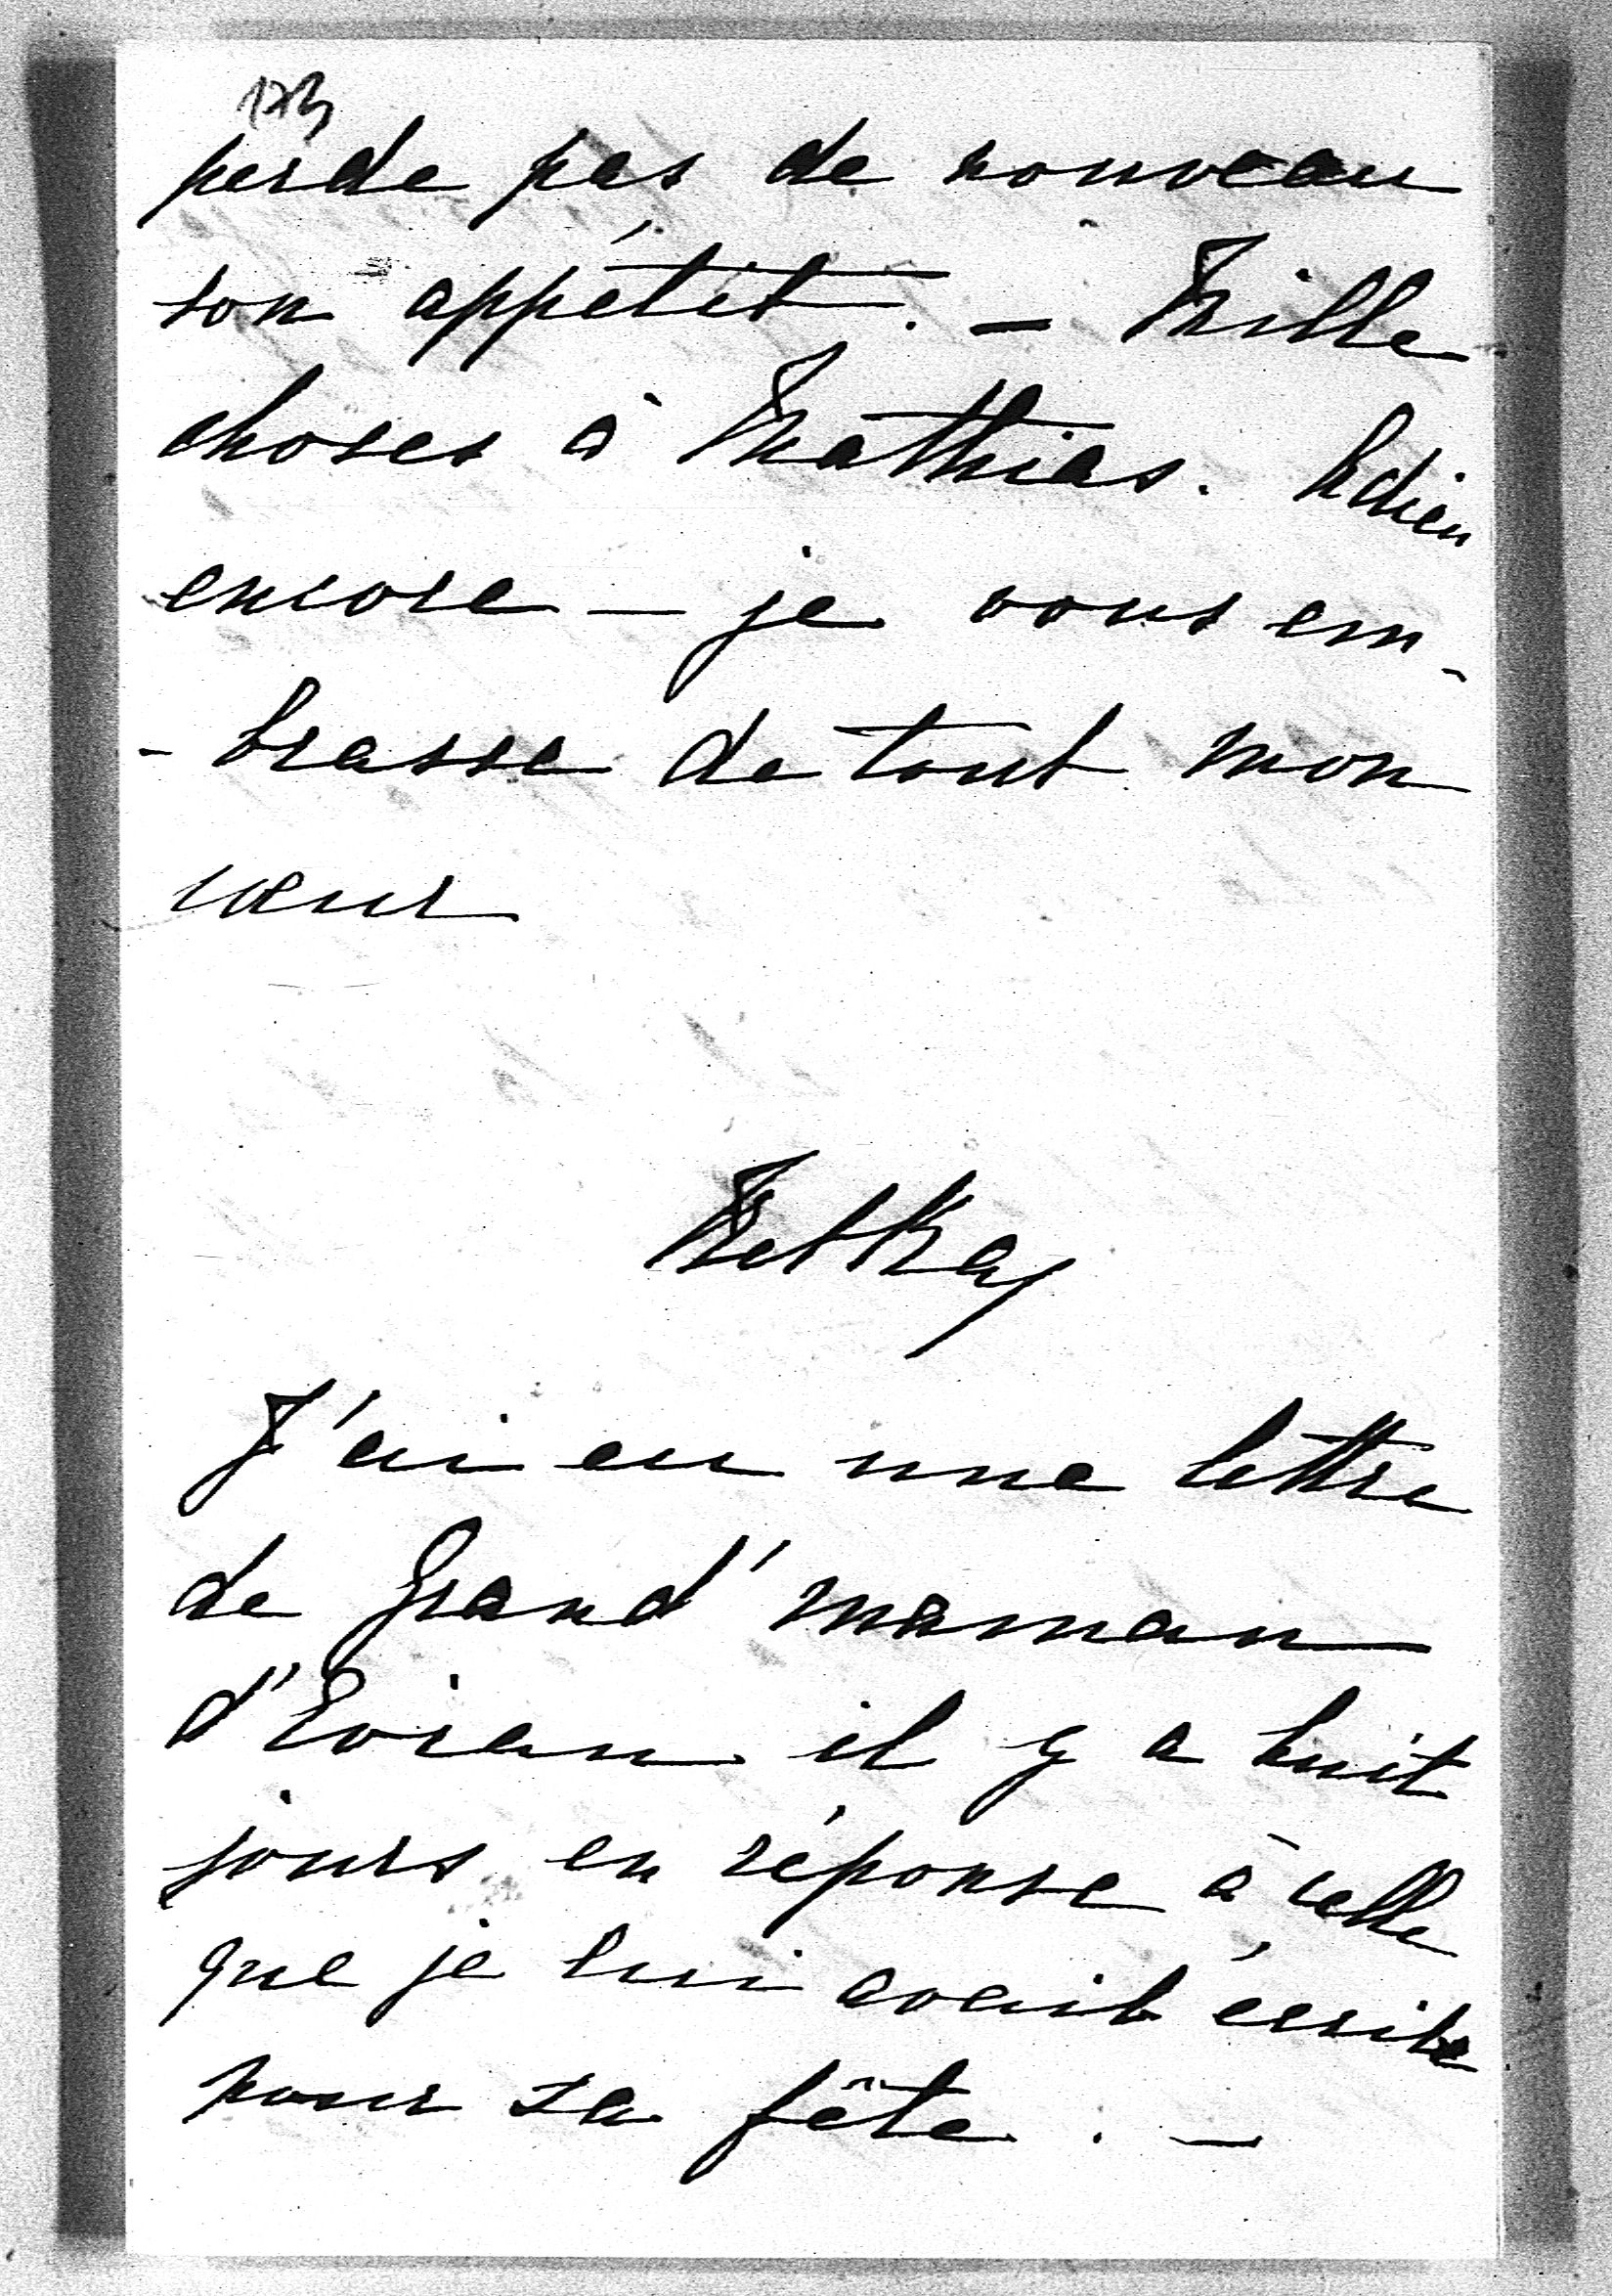 173
perde pas de nouveau
son appétit. – Mille
choses à Mathias. Adieu
encore – je vous em-
-brasse de tout mon
cœur
J'ai eu une lettre
de Grand'maman
d'Evian il y a huit
jours en réponse à celle
que je lui avait écrite
pour sa fête. –